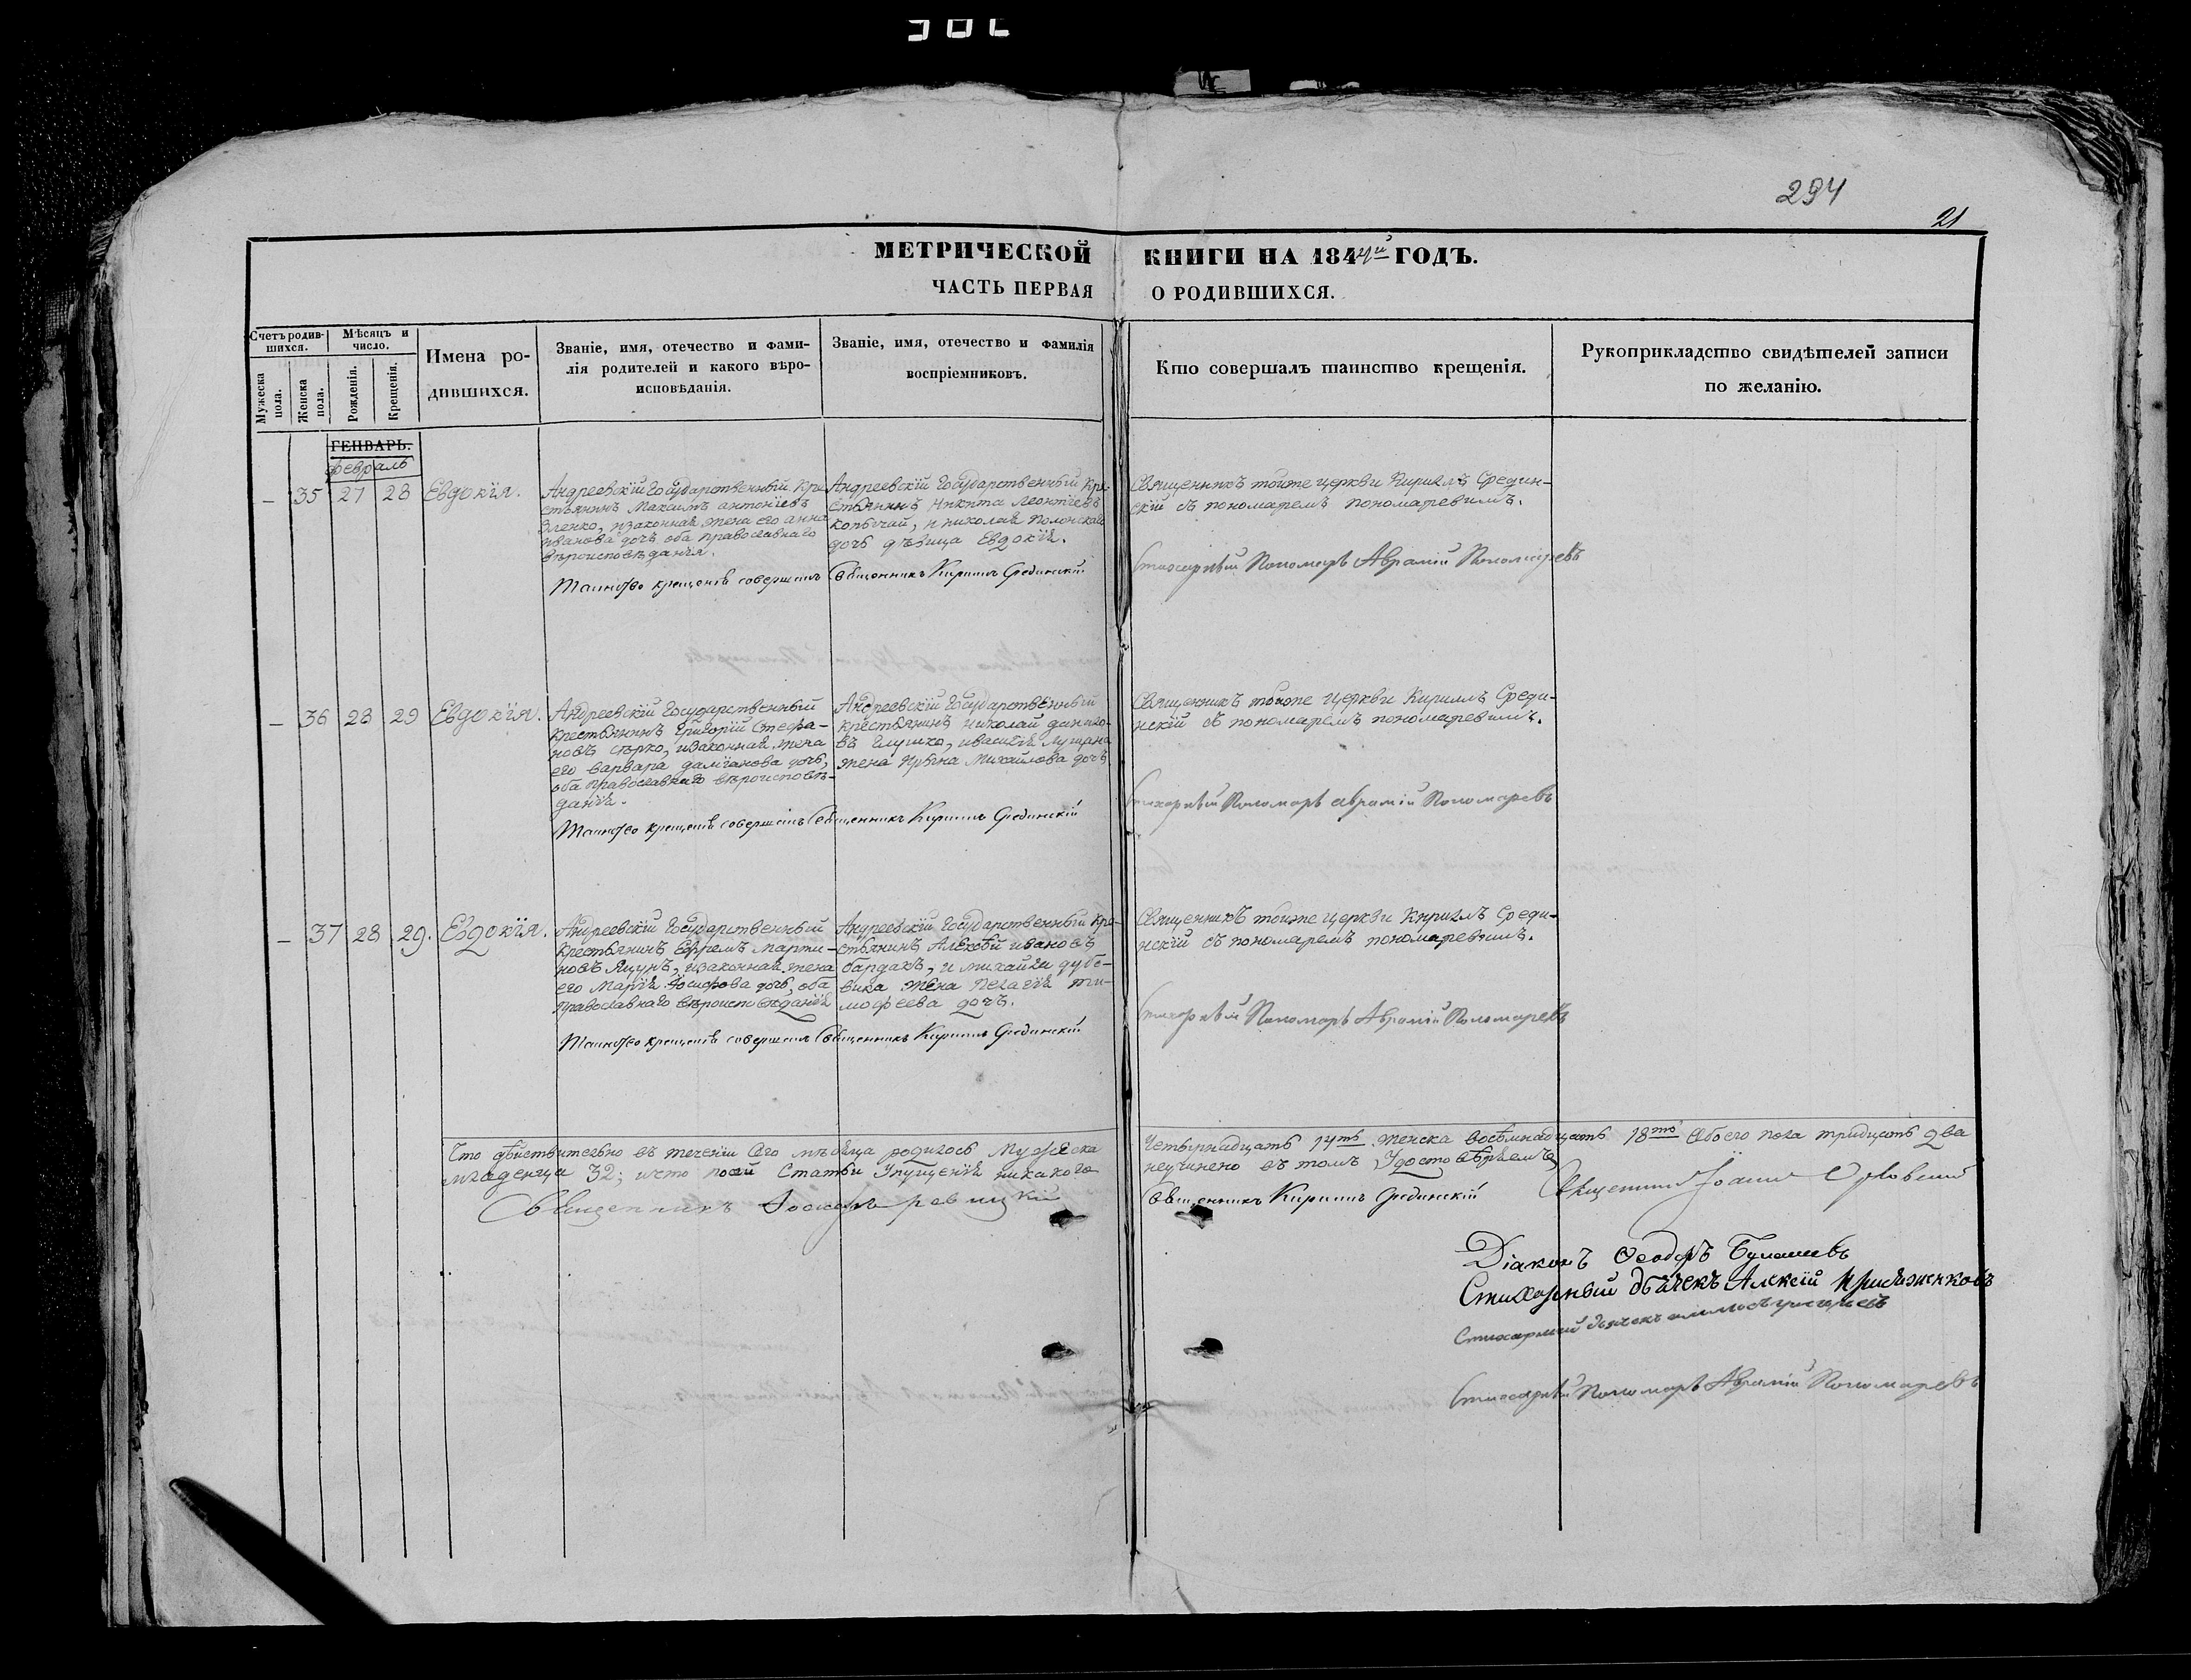 294
21
МЕТРИЧЕСКОЙ КНИГИ НА 1844й ГОДЪ.
ЧАСТЬ ПЕРВАЯ О РОДИВШИХСЯ.
Счетъ родив-
шихся.
Мужеска
пола.
Женска
пола.
Мѣсяцъ и
число.
Рожденія.
Крещенія.
Имена ро-
дившихся.
Званіе, имя, отечество и фами-
лія родителей и какого вѣро-
исповѣданія.
Званіе, имя, отечество и фамилія
воспріемниковъ.
Кто совершалъ таинство крещенія.
Рукоприкладство свидѣтелей записи
по желанію.
ГЕНВАРЬ.
февраль
— 35 27 28 Евдокія.
Андреевскій Государственный Кре-
стьянинъ Максимъ антоніевъ
Зленко, изаконная жена его анна
иванова дочь оба православнаго
вѣроисповѣданія.
Андреевскій Государственный Кре-
стьянинъ Никита Леонтіевъ
копычай, и николая полонскаго
дочь дѣвица Евдокія.
Таинство крещенія совершилъ Священникъ Кириллъ Срединскій
Священникъ тойже церкви Кириллъ Средин-
скій съ пономаремъ пономаревимъ.
Стихарный Пономарь Аврамій Пономаревъ
— 36 28 29 Евдокія.
Андреевскій Государственный
крестьянинъ Григорій Стефа-
новъ сѣрко, изаконная жена
его варвара даміанова дочь,
оба православнаго вѣроисповѣ-
данія.
Андреевскій Государственный
крестьянинъ николай данило-
въ глушко, ивасилія лущана
жена ирина михайлова дочь
Таинство крещенія совершилъ Священникъ Кириллъ Срединскій
Священникъ тойже церкви Кириллъ Среди-
нскій съ пономаремъ пономаревимъ.
Стихарный Пономарь Аврамій Пономаревъ
— 37 28 29. Евдокія.
Андреевскій Государственный
крестьянинъ Ефремъ марти-
новъ Яцунъ, изаконная жена
его Марія Іосифова дочь, оба
Православнаго вѣроисповѣданія
Андреевскій Государственный кре-
стьянинъ Алексѣй ивановъ
бардакъ, и михайла дубо-
вика жена пелагія ти-
мофеева дочь.
Таинство крещенія совершилъ Священникъ Кириллъ Срединскій
Священникъ тойже церкви Кириллъ Среди-
нскій съ пономаремъ пономаревимъ.
Стихарный Пономарь Аврамій Пономаревъ
Что дѣйствительно въ теченіи Сего мѣсяца родилось Мужеска Четырнадцать 14ть женска восѣмнадцать 18ть обоего пола тридцать два
младенца 32; ичто посей Статьи Упущенія никакого неучинено въ томъ Удостовѣряемъ
Священникъ
Священникъ Кириллъ Срединскій
Священникъ Іоаннъ
Діаконъ Ѳеодоръ
Стихарный дьячекъ Алексій
Стихарный дьячекъ
Стихарный Пономарь Аврамій Пономаревъ